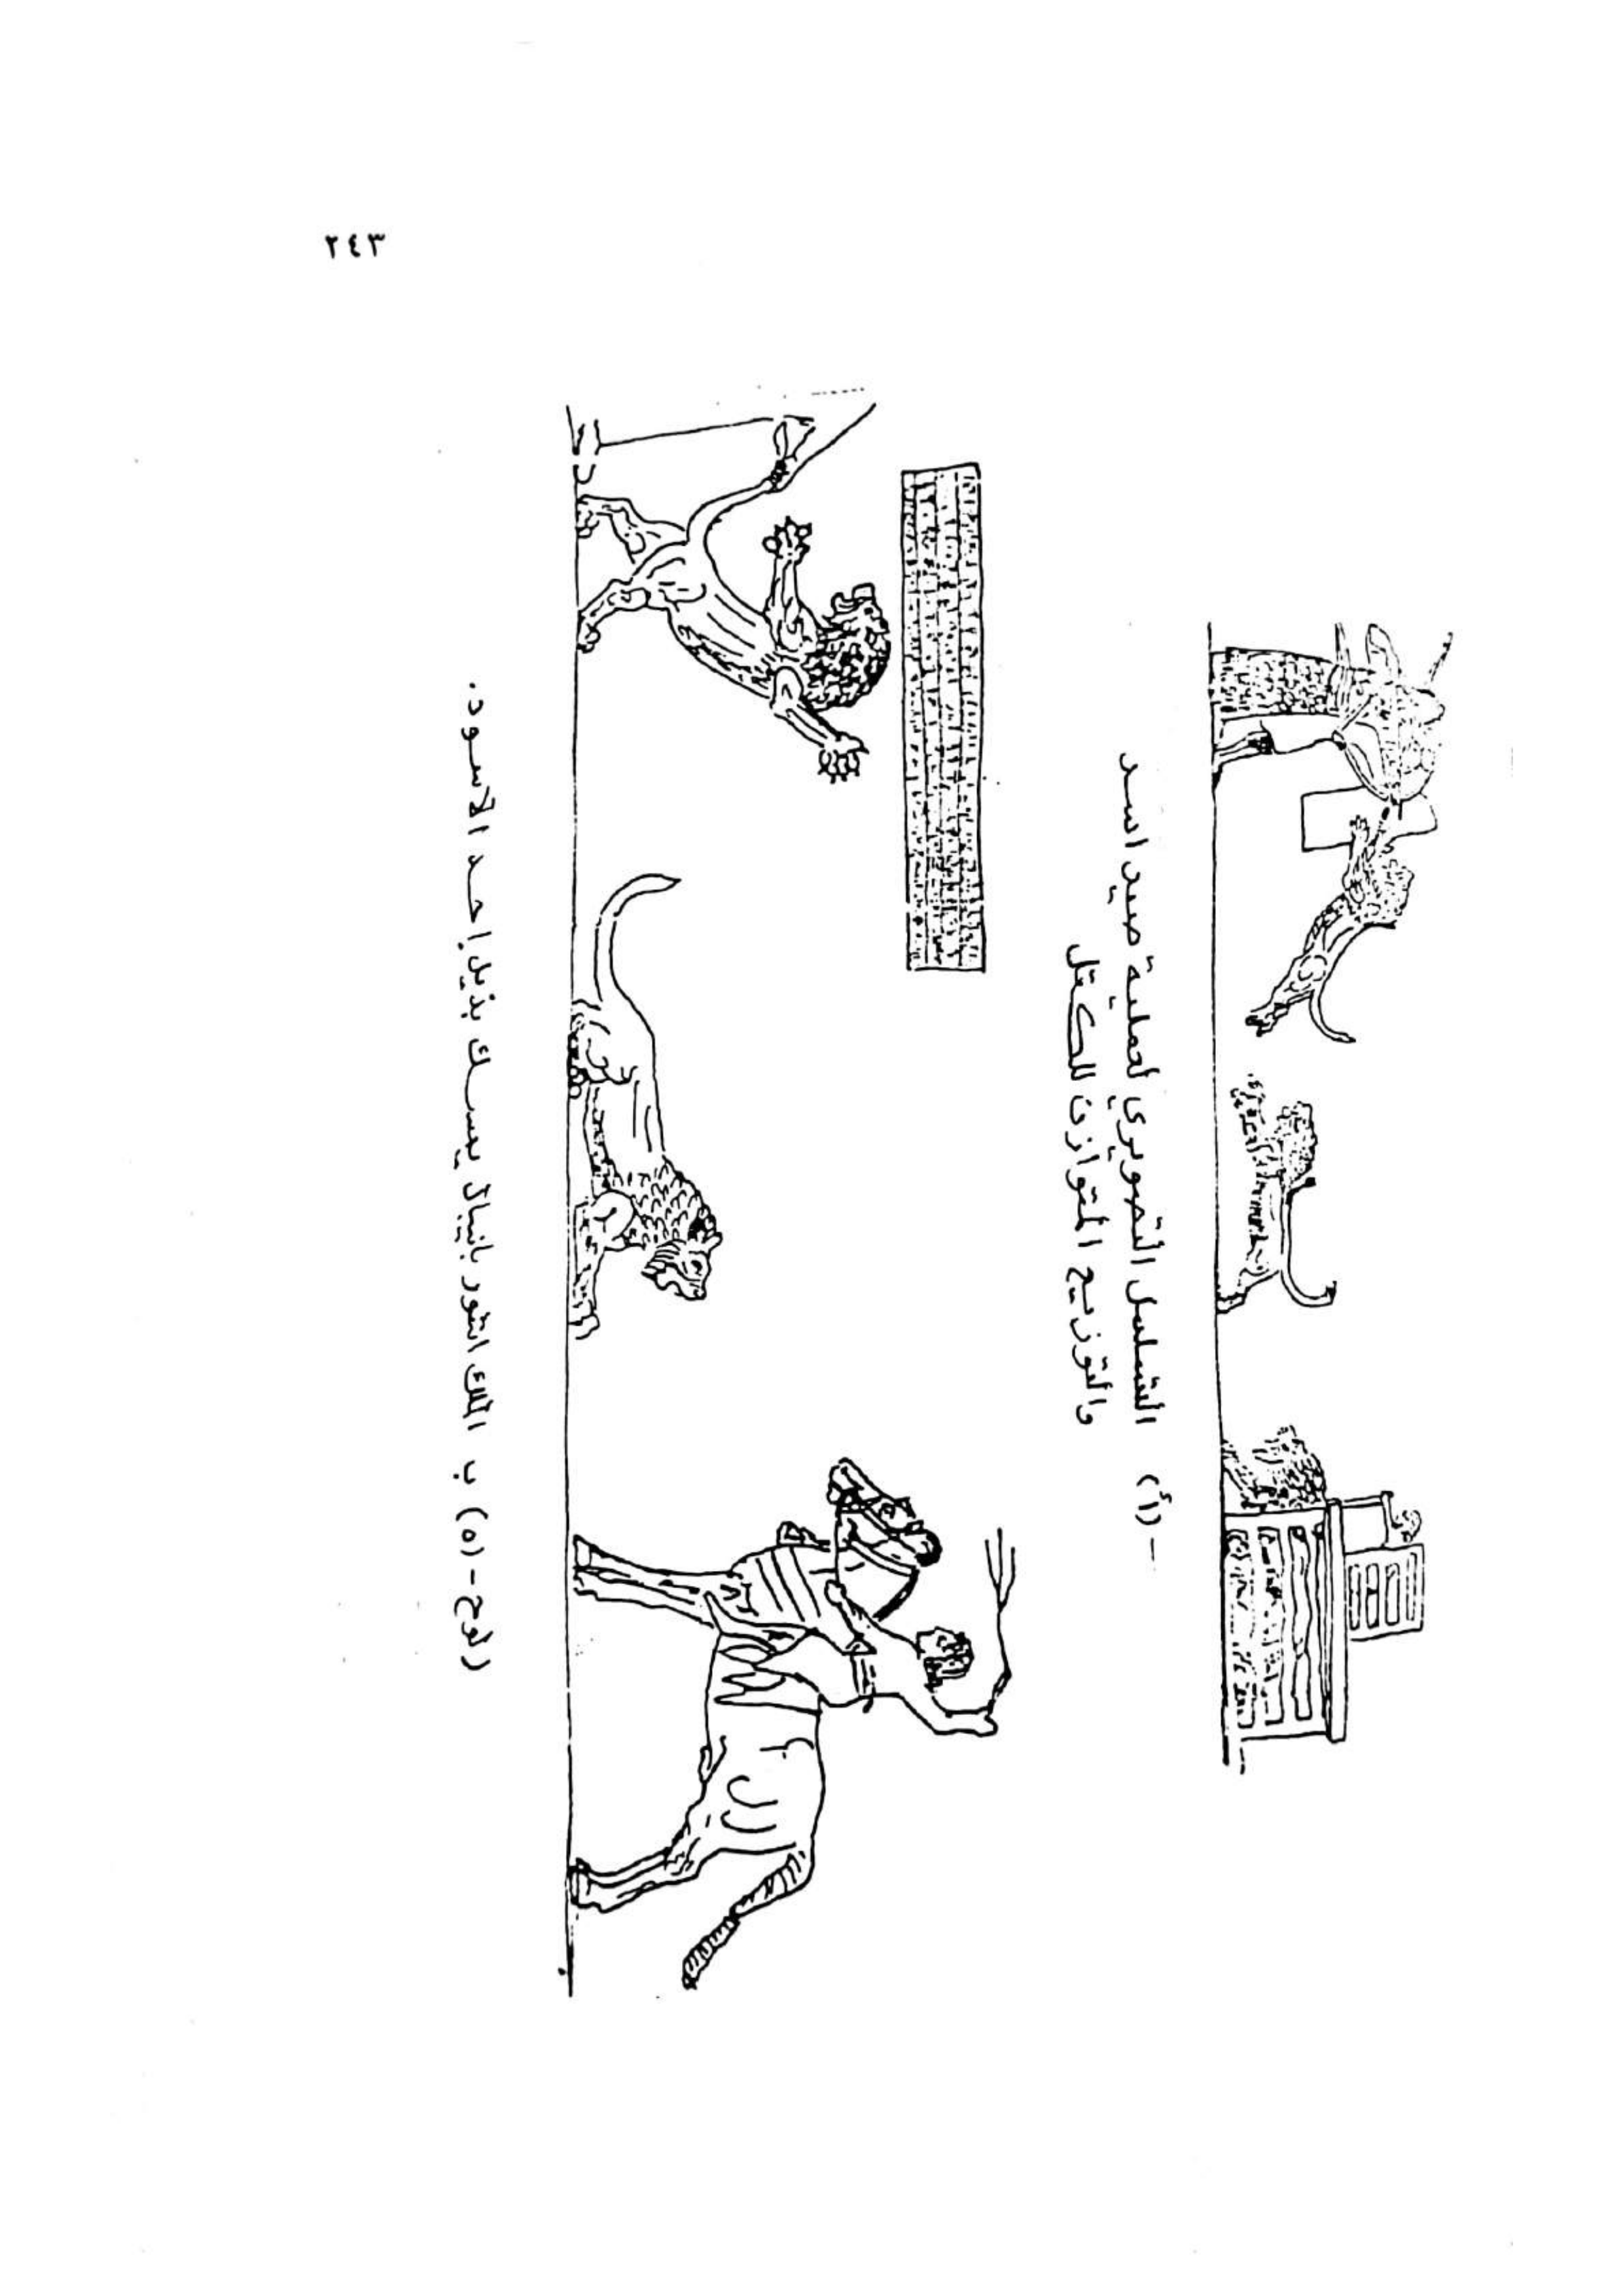 ٢٤٣
- (أ) التسلسل التصويري لعملية صيد اسد
والتوزيع المتوازن للكتل
(لوح - (٥) ب الملك اشور بانيبال يمسك بذيل احد الاسود.